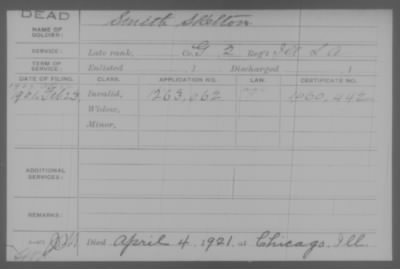 DEAD
NAME OF SOLDIER: Skelton
SERVICE: Late rank, Co. G 2 Reg't Ill L A
TERM OF SERVICE: Enlisted 1 Discharged 1
DATE OF FILING. CLASS. APPLICATION NO. LAW. CERTIFICATE NO.
Invalid, 1263,062 1060,442
Widow,
Minor,
ADDITIONAL SERVICES:
REMARKS:
Died April 4, 1921, at Chicago, Ill.